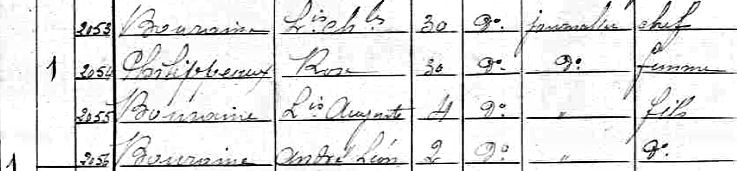 2053 Bouraine L.is ch.les 30 d.o journalier chef
1 2054 Philippeaux Rose 30 d.o d.o femme
2055 Bouraine L.is Auguste 4 d.o " fils
1 2056 Bouraine André Léon 2 d.o " d.o